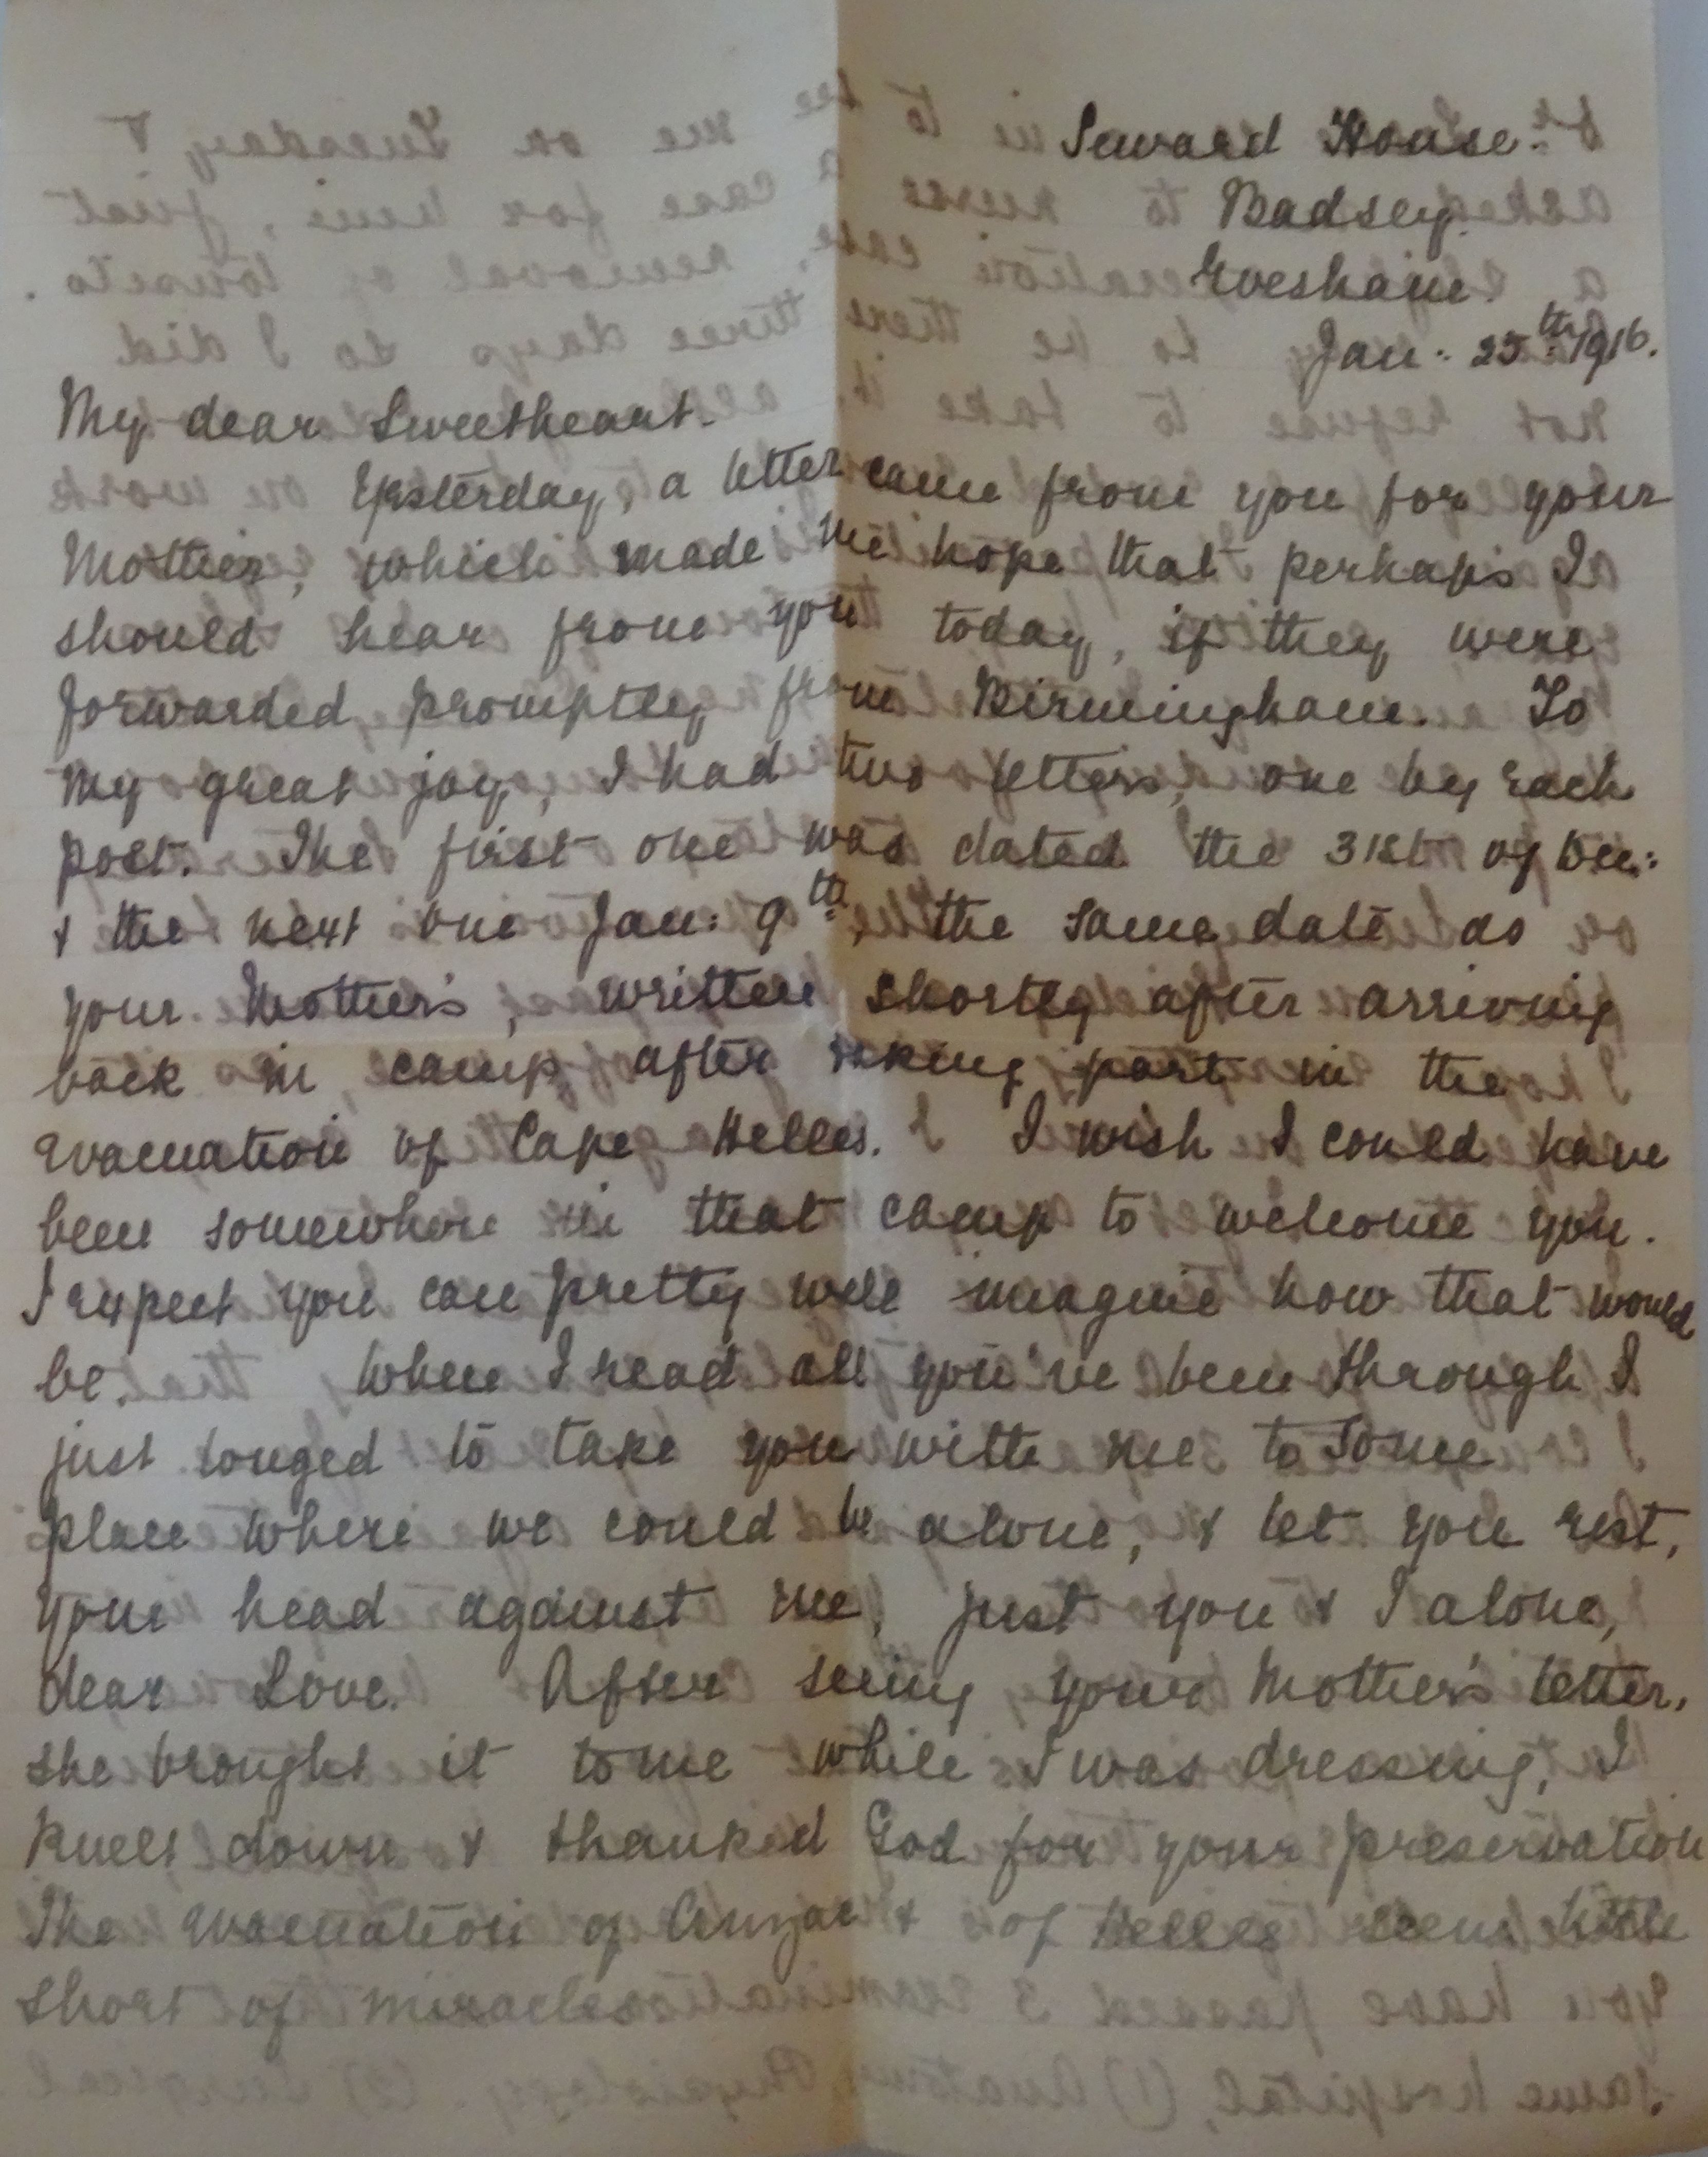 Seward House.
Badsey.
Evesham.
Jan: 25th 1916.
My dear Sweetheart.
Yesterday, a letter came from you for your
Mother, which made me hope that perhaps I
should hear from you today, if they were
forwarded promptly from Birmingham. To
my great joy, I had two letters, one by each
post. The first one was dated the 31st of Dec:
& the next one Jan: 9th, the same date as
your Mother's, written shortly after arriving
back in camp after taking part in the
evacuation of Cape Helles. I wish I could have
been somewhere in that camp to welcome you.
I expect you can pretty well imagine how that would
be. When I read all you've been through I
just longed to take you with me to some
place where we could be alone, & let you rest,
your head against me, just you & I alone,
dear Love. After seeing your Mother's letter,
she brought it to me while I was dressing, I
knelt down & thanked God for your preservation
The evacuation of Anzac & of Helles seems little
short of miracles